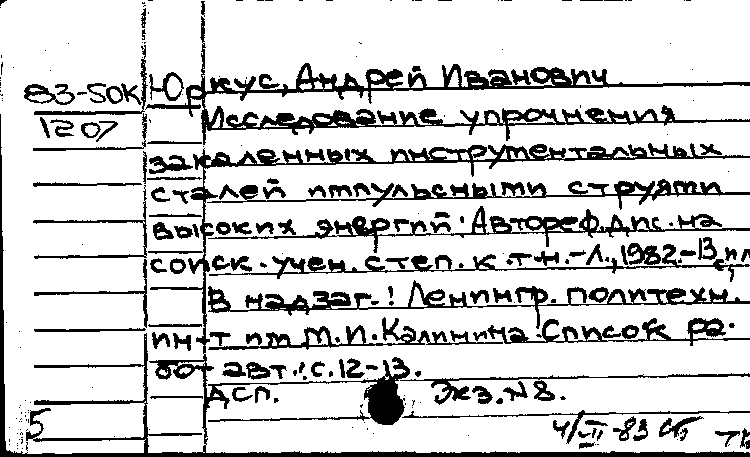 83-50К Юркус, Андрей Иванович
1207 Исследование упрочнения
закаленных инструментальных
сталей импульсными струями
высоких энергий: Автореф. дис. на
соиск. учен. степ. к.т.н. - Л., 1982. - 13 с., ил
В надзаг.: Ленингр. политехн.
ин-т им М.И. Калинина. Список ра-
бот авт.: с. 12-13.
ДСП. Экз. №8.
5